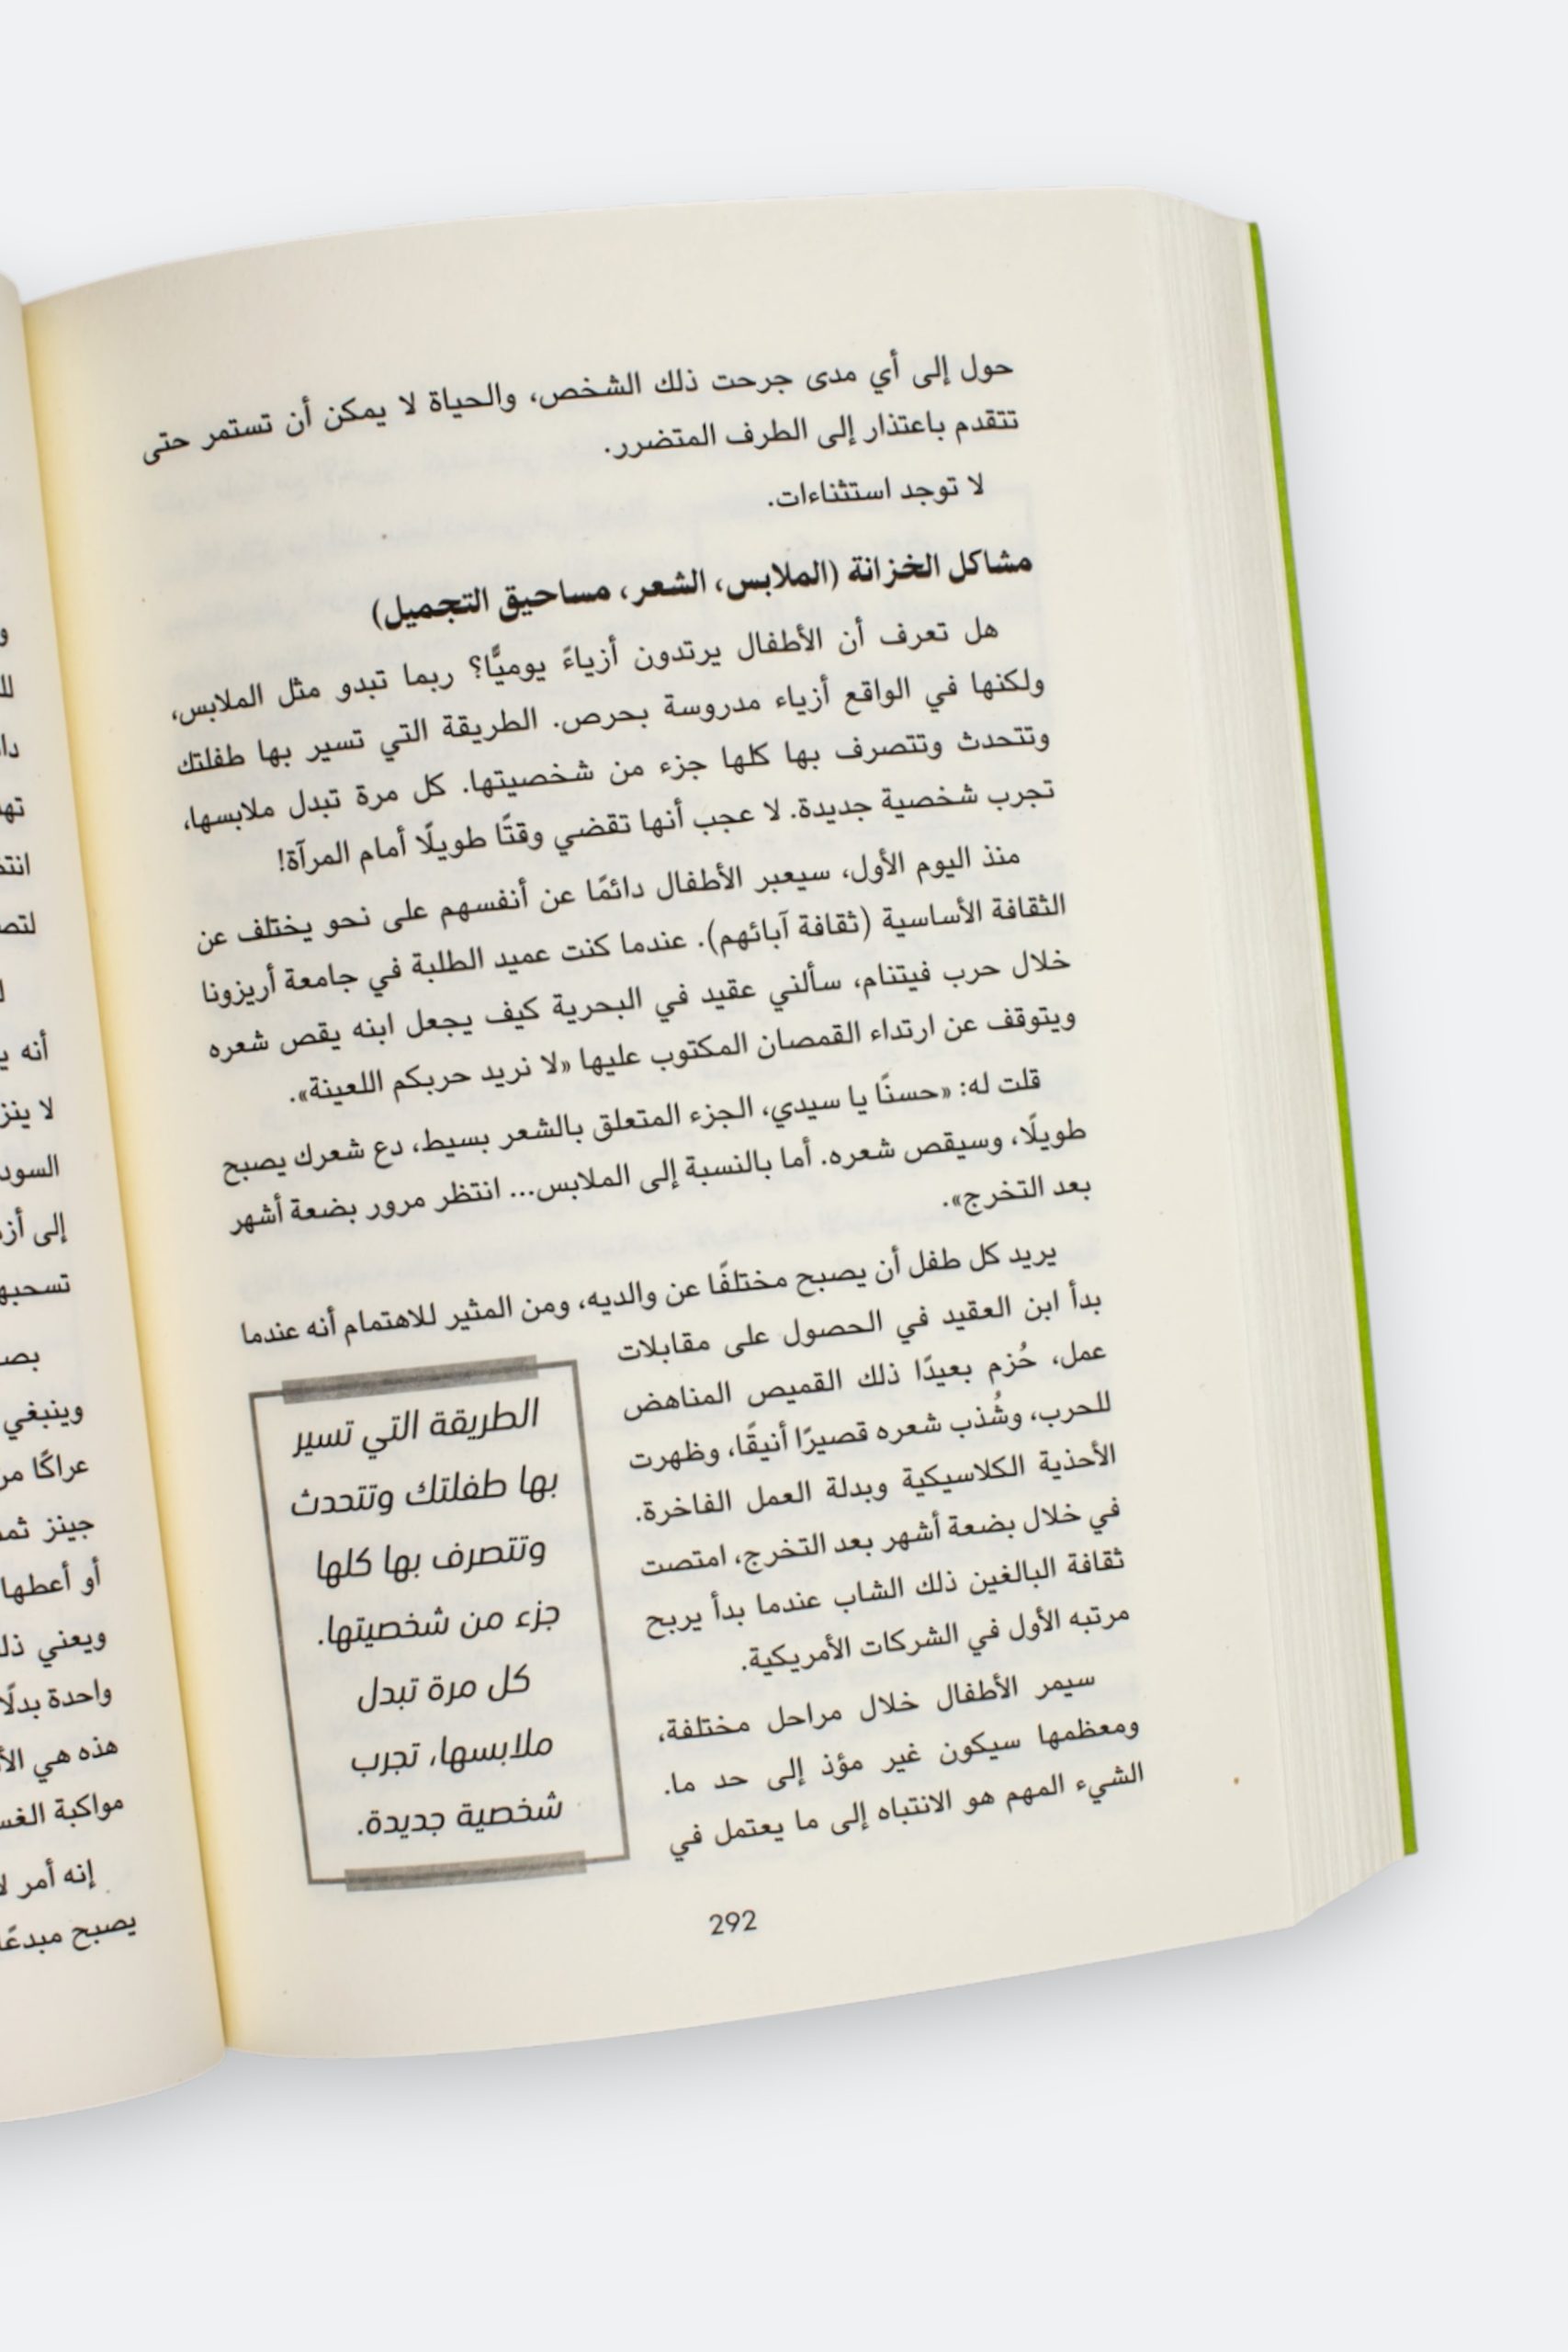 حول إلى أي مدى جرحت ذلك الشخص، والحياة لا يمكن أن تستمر حتى
تتقدم باعتذار إلى الطرف المتضرر.
لا توجد استثناءات.
مشاكل الخزانة (الملابس، الشعر، مساحيق التجميل)
هل تعرف أن الأطفال يرتدون أزياءً يوميًّا؟ ربما تبدو مثل الملابس،
ولكنها في الواقع أزياء مدروسة بحرص. الطريقة التي تسير بها طفلتك
وتتحدث وتتصرف بها كلها جزء من شخصيتها. كل مرة تبدل ملابسها،
تجرب شخصية جديدة. لا عجب أنها تقضي وقتًا طويلًا أمام المرآة!
منذ اليوم الأول، سيعبر الأطفال دائمًا عن أنفسهم على نحو يختلف عن
الثقافة الأساسية (ثقافة آبائهم). عندما كنت عميد الطلبة في جامعة أريزونا
خلال حرب فيتنام، سألني عقيد في البحرية كيف يجعل ابنه يقص شعره
ويتوقف عن ارتداء القمصان المكتوب عليها «لا نريد حربكم اللعينة».
قلت له: «حسنًا يا سيدي، الجزء المتعلق بالشعر بسيط، دع شعرك يصبح
طويلًا، وسيقص شعره. أما بالنسبة إلى الملابس... انتظر مرور بضعة أشهر
بعد التخرج».
يريد كل طفل أن يصبح مختلفًا عن والديه، ومن المثير للاهتمام أنه عندما
بدأ ابن العقيد في الحصول على مقابلات
عمل، حُزم بعيدًا ذلك القميص المناهض
للحرب، وشُذب شعره قصيرًا أنيقًا، وظهرت
الأحذية الكلاسيكية وبدلة العمل الفاخرة.
في خلال بضعة أشهر بعد التخرج، امتصت
ثقافة البالغين ذلك الشاب عندما بدأ يربح
مرتبه الأول في الشركات الأمريكية.
سيمر الأطفال خلال مراحل مختلفة،
ومعظمها سيكون غير مؤذ إلى حد ما.
الشيء المهم هو الانتباه إلى ما يعتمل في
الطريقة التي تسير
بها طفلتك وتتحدث
وتتصرف بها كلها
جزء من شخصيتها.
كل مرة تبدل
ملابسها، تجرب
شخصية جديدة.
292
أنه
السود
إلى
وينبغي
عراكًا
جينز
أو أعطها
ويعني
واحدة بدلًا
هذه هي
مواكبة
إنه أمر
يصبح مبدعًا